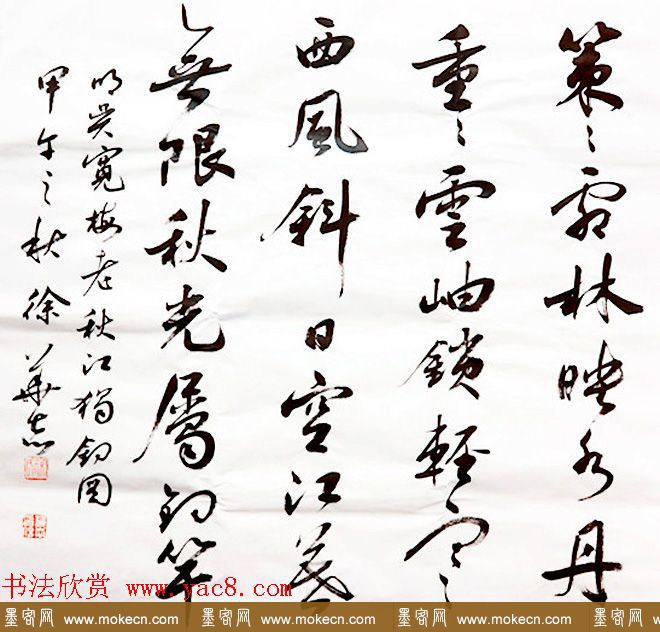 策〻霜林映水丹
重〻雲岫鎖輕寒
西風斜日空江暮
無限秋光屬釣竿
明吳寬梅老秋江獨釣圖
甲午之秋徐華志
书法欣赏 www.yac8.com
墨客网 www.mokecn.com 墨客网 www.mokecn.com 墨客网 www.mokecn.com